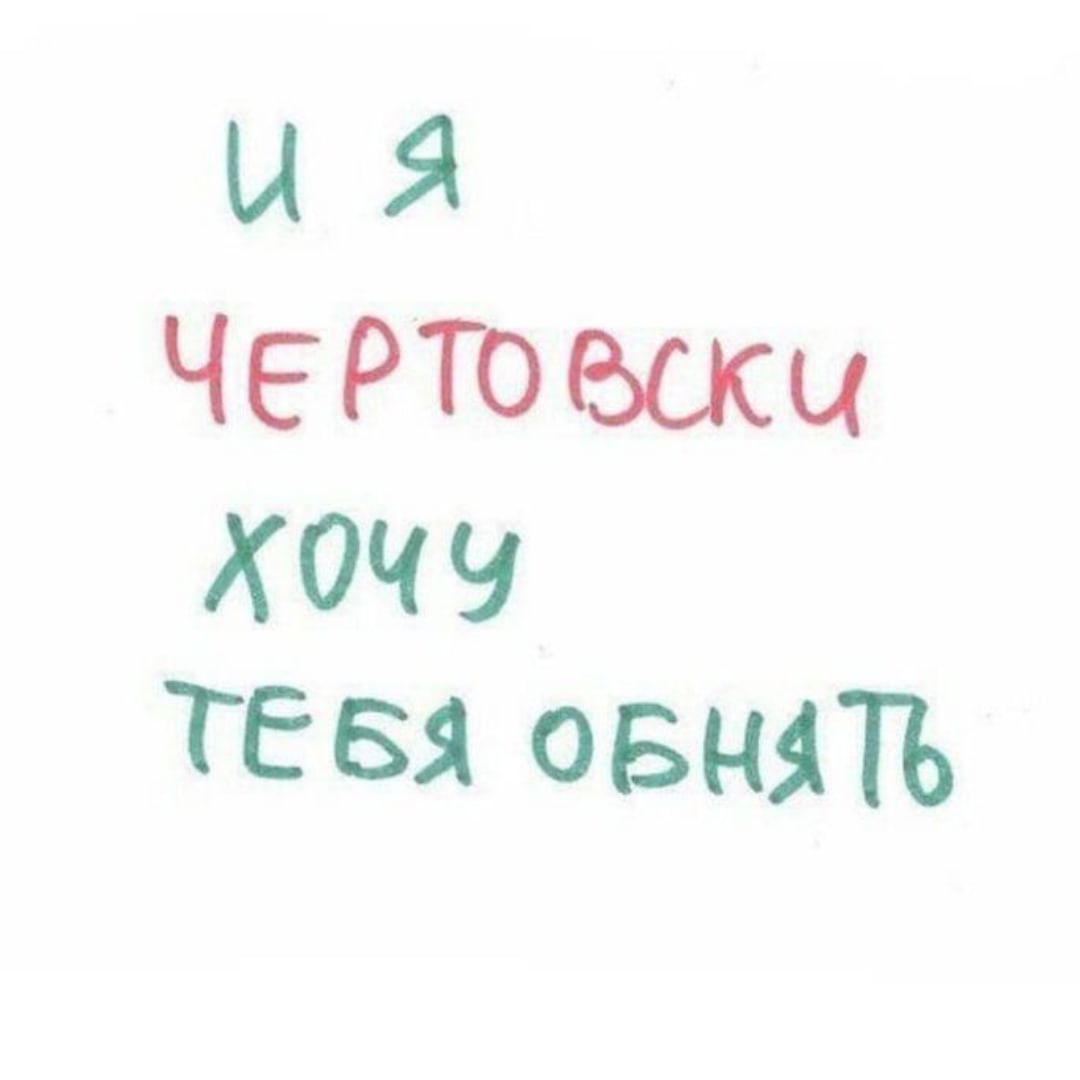 И Я
ЧЕРТОВСКИ
ХОЧУ
ТЕБЯ ОБНЯТЬ